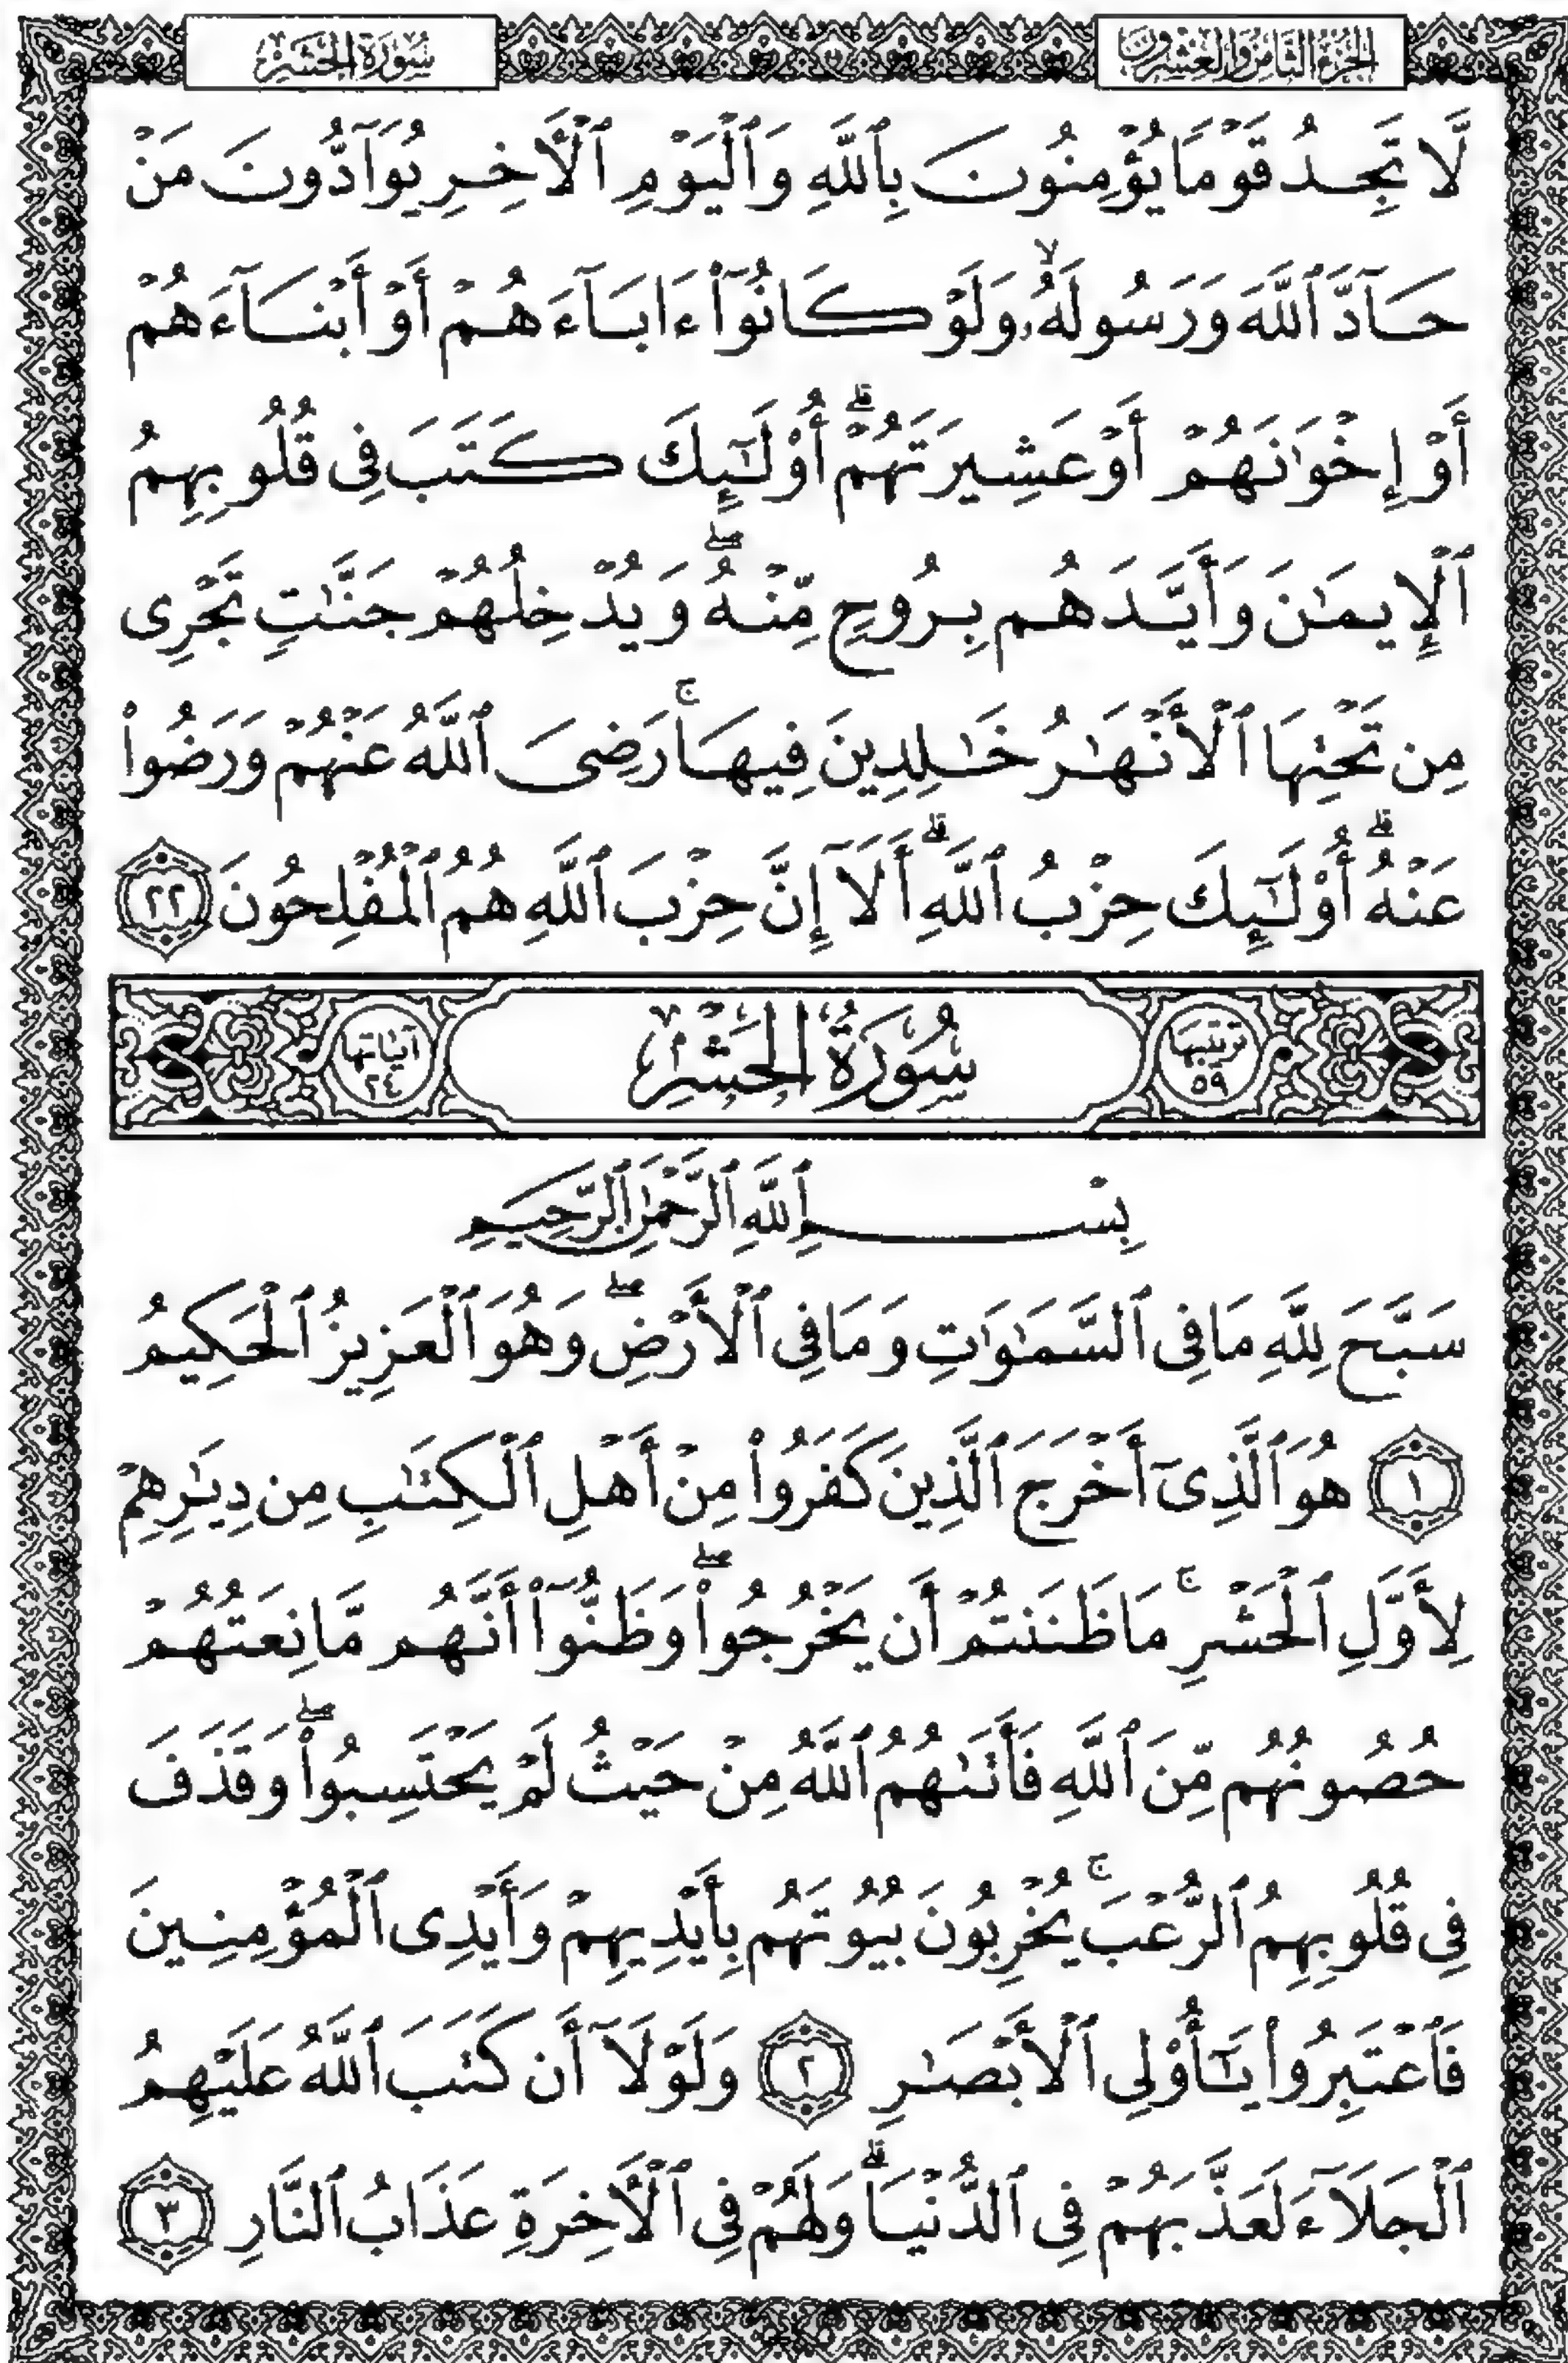 الجزء الثامن والعشرون
سورة الحشر
لَّا تَجِدُ قَوْمًا يُؤْمِنُونَ بِٱللَّهِ وَٱلْيَوْمِ ٱلْأَخِرِ يُوَآدُّونَ مَنْ
حَآدَّ ٱللَّهَ وَرَسُولَهُۥ ۙ وَلَوْ كَانُوٓا۟ ءَابَآءَهُمْ أَوْ أَبْنَآءَهُمْ
أَوْ إِخْوَٰنَهُمْ أَوْ عَشِيرَتَهُمْ ۚ أُو۟لَـٰٓئِكَ كَتَبَ فِى قُلُوبِهِمُ
ٱلْإِيمَـٰنَ وَأَيَّدَهُم بِرُوحٍ مِّنْهُ ۖ وَيُدْخِلُهُمْ جَنَّـٰتٍ تَجْرِى
مِن تَحْتِهَا ٱلْأَنْهَـٰرُ خَـٰلِدِينَ فِيهَا ۚ رَضِىَ ٱللَّهُ عَنْهُمْ وَرَضُوا۟
عَنْهُ ۗ أُو۟لَـٰٓئِكَ حِزْبُ ٱللَّهِ ۗ أَلَآ إِنَّ حِزْبَ ٱللَّهِ هُمُ ٱلْمُفْلِحُونَ ٢٢
ترتيبها ٥٩ سُورَةُ الحَشْرِ آياتها ٢٤
بِسْمِ ٱللَّهِ ٱلرَّحْمَـٰنِ ٱلرَّحِيمِ
سَبَّحَ لِلَّهِ مَا فِى ٱلسَّمَـٰوَٰتِ وَمَا فِى ٱلْأَرْضِ ۖ وَهُوَ ٱلْعَزِيزُ ٱلْحَكِيمُ
١ هُوَ ٱلَّذِىٓ أَخْرَجَ ٱلَّذِينَ كَفَرُوا۟ مِنْ أَهْلِ ٱلْكِتَـٰبِ مِن دِيَـٰرِهِمْ
لِأَوَّلِ ٱلْحَشْرِ ۚ مَا ظَنَنتُمْ أَن يَخْرُجُوا۟ ۖ وَظَنُّوٓا۟ أَنَّهُم مَّانِعَتُهُمْ
حُصُونُهُم مِّنَ ٱللَّهِ فَأَتَىٰهُمُ ٱللَّهُ مِنْ حَيْثُ لَمْ يَحْتَسِبُوا۟ ۖ وَقَذَفَ
فِى قُلُوبِهِمُ ٱلرُّعْبَ ۚ يُخْرِبُونَ بُيُوتَهُم بِأَيْدِيهِمْ وَأَيْدِى ٱلْمُؤْمِنِينَ
فَٱعْتَبِرُوا۟ يَـٰٓأُو۟لِى ٱلْأَبْصَـٰرِ ٢ وَلَوْلَآ أَن كَتَبَ ٱللَّهُ عَلَيْهِمُ
ٱلْجَلَآءَ لَعَذَّبَهُمْ فِى ٱلدُّنْيَا ۗ وَلَهُمْ فِى ٱلْأَخِرَةِ عَذَابُ ٱلنَّارِ ٣